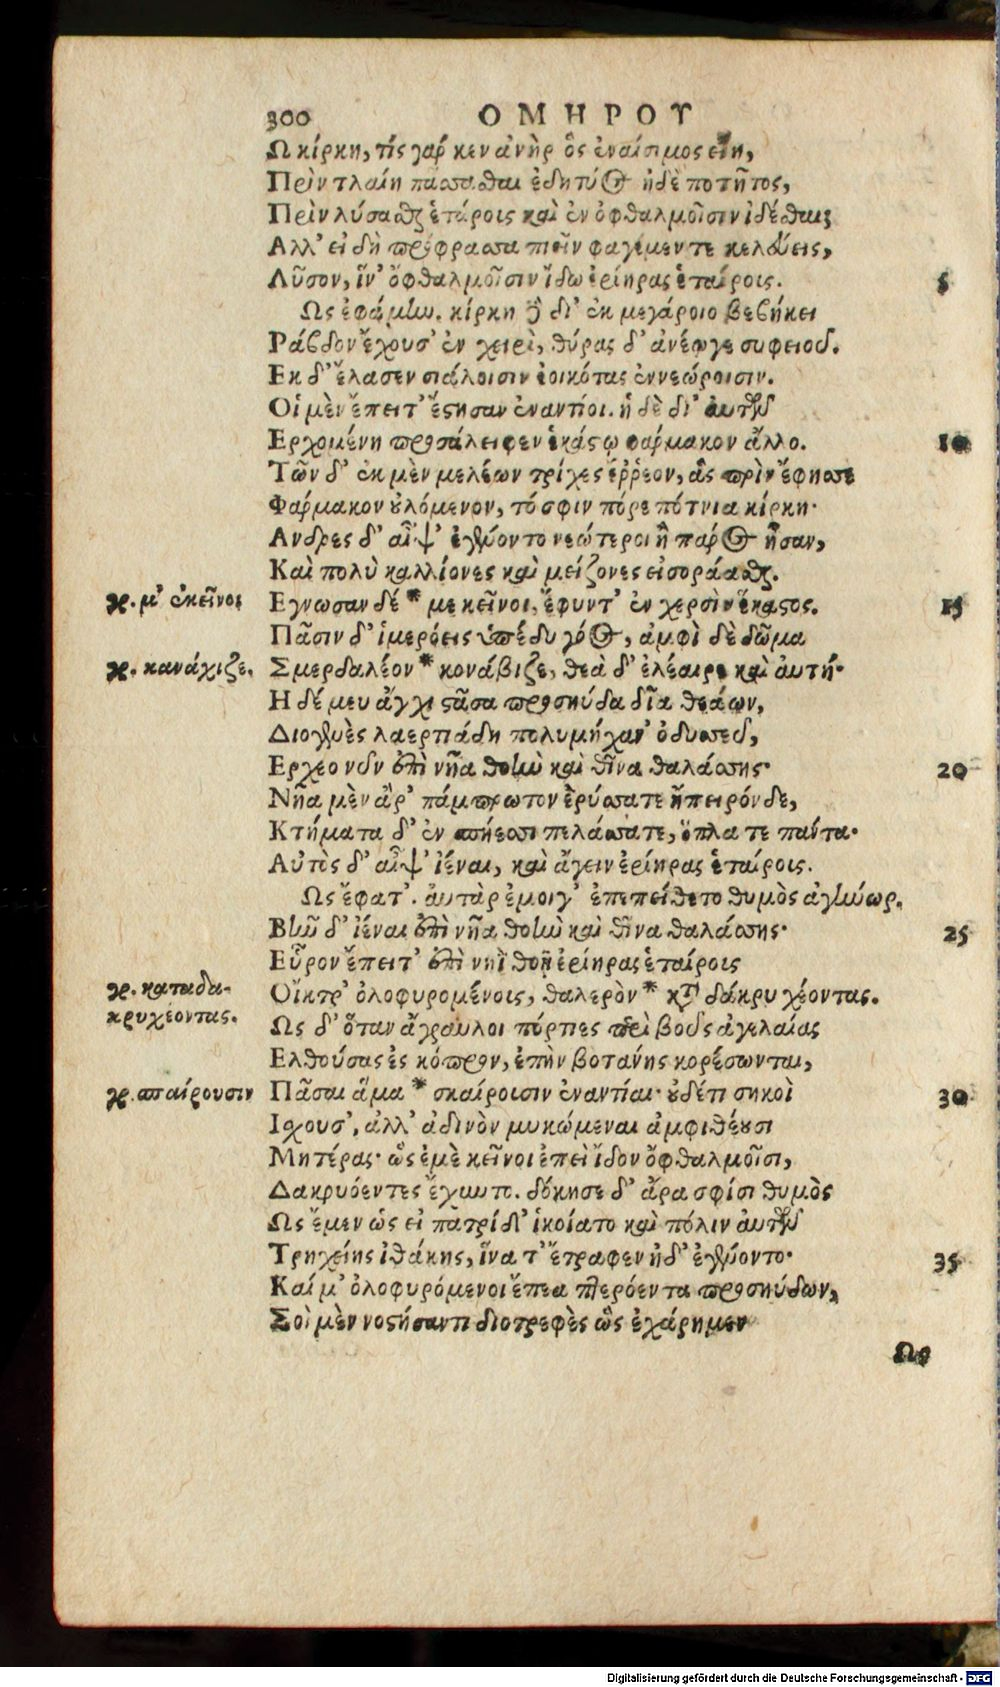 300 ΟΜΗΡΟΥ
Ω κίρκη, τίς γάρ κεν ἀνὴρ ὃς ἐναίσιμος εἴη,
Πρὶν τλαίη πάσσασθαι ἐδητύος ἠδὲ ποτῆτος,
Πρὶν λύσασθαι ἑτάροις καὶ ἐν ὀφθαλμοῖσιν ἰδέσθαι;
Αλλ' εἰ δὴ πρόφρασσα πιεῖν φαγέμεν τε κελεύεις,
Λῦσον, ἵν' ὀφθαλμοῖσιν ἴδω ἐρίηρας ἑταίροις. 5
Ως ἐφάμην. κίρκη δὲ δι' ἐκ μεγάροιο βεβήκει
Ράβδον ἔχουσ' ἐν χειρὶ, θύρας δ' ἀνέωγε συφειοῦ.
Εκ δ' ἔλασεν σιάλοισιν ἐοικότας ἐννεώροισιν.
Οἱ μὲν ἔπειτ' ἔστησαν ἐναντίοι. ἡ δὲ δι' αὐτῶν
Ερχομένη προσάλειφεν ἑκάστῳ φάρμακον ἄλλο. 10
Τῶν δ' ἐκ μὲν μελέων τρίχες ἔῤῥεον, ἃς πρὶν ἔφησε
Φάρμακον οὐλόμενον, τό σφιν πόρε πότνια κίρκη·
Ανδρες δ' αἶψ' ἐγένοντο νεώτεροι ἢ πάρος ἦσαν,
Καὶ πολὺ καλλίονες καὶ μείζονες εἰσοράασθαι.
γρ. μ' ἐκεῖνοι Εγνωσαν δέ * με κεῖνοι, ἔφυντ' ἐν χερσὶν ἕκαστος. 15
Πᾶσιν δ' ἱμερόεις ὑπέδυ γόος, ἀμφὶ δὲ δῶμα
γρ. κανάχιζε. Σμερδαλέον * κονάβιζε, θεὰ δ' ἐλέαιρε καὶ αὐτή·
Η δέ μευ ἄγχι στᾶσα προσηύδα δῖα θεάων,
Διογενὲς λαερτιάδη πολυμήχαν' ὀδυσσεῦ,
Ερχεο νῦν ἐπὶ νῆα θοὴν καὶ θῖνα θαλάσσης· 20
Νῆα μὲν ἂρ' πάμπρωτον ἐρύσσατε ἤπειρόνδε,
Κτήματα δ' ἐν σπήεσσι πελάσσατε, ὅπλα τε πάντα·
Αὐτὸς δ' αἶψ' ἰέναι, καὶ ἄγειν ἐρίηρας ἑταίροις.
Ως ἔφατ'. αὐτὰρ ἐμοιγ' ἐπεπείθετο θυμὸς ἀγήνωρ.
Βῆν δ' ἰέναι ἐπὶ νῆα θοὴν καὶ θῖνα θαλάσσης· 25
Εὗρον ἔπειτ' ἐπὶ νηῒ θοῇ ἐρίηρας ἑταίροις
γρ. καταδα-
κρυχέοντας. Οἴκτρ' ὀλοφυρομένοις, θαλερὸν * κατὰ δάκρυ χέοντας.
Ως δ' ὅταν ἄγραυλοι πόρτιες περὶ βοῦς ἀγελαίας
Ελθούσας ἐς κόπρον, ἐπὴν βοτάνης κορέσωνται,
γρ. σπαίρουσιν Πᾶσαι ἅμα * σκαίροισιν ἐναντίαι· οὐδέτι σηκοὶ 30
Ισχουσ', ἀλλ' ἀδινὸν μυκώμεναι ἀμφιθέουσι
Μητέρας· ὣς ἐμὲ κεῖνοι ἐπεὶ ἴδον ὀφθαλμοῖσι,
Δακρυόεντες ἔχυντο. δόκησε δ' ἄρα σφίσι θυμὸς
Ως ἔμεν ὡς εἰ πατρίδ' ἱκοίατο καὶ πόλιν αὐτῶν
Τρηχείης ἰθάκης, ἵνα τ' ἔτραφεν ἠδ' ἐγένοντο· 35
Καί μ' ὀλοφυρόμενοι ἔπεα πτερόεντα προσηύδων,
Σοὶ μὲν νοστήσαντι διοτρεφὲς ὣς ἐχάρημεν
Ως
Digitalisierung gefördert durch die Deutsche Forschungsgemeinschaft - DFG